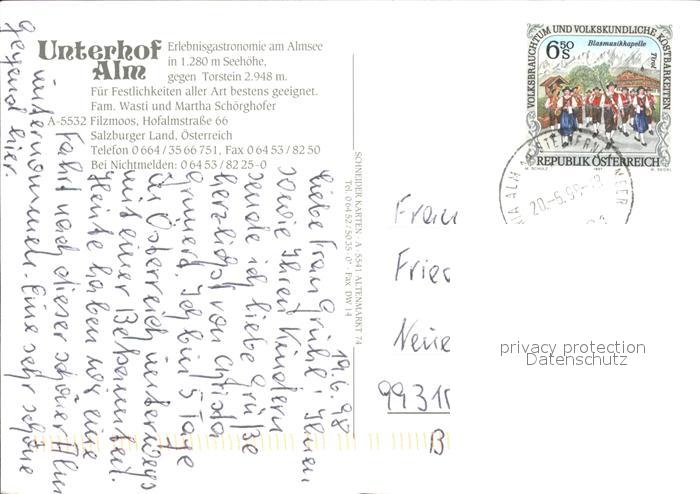 Unterhof
Alm
Erlebnisgastronomie am Almsee
in 1.280 m Seehöhe,
gegen Torstein 2.948 m.
Für Festlichkeiten aller Art bestens geeignet.
Fam. Wasti und Martha Schörghofer
A-5532 Filzmoos, Hofalmstraße 66
Salzburger Land, Österreich
Telefon 0 664 / 35 66 751, Fax 0 64 53 / 82 50
Bei Nichtmelden: 0 64 53 / 82 25-0
SCHNEIDER KARTEN · A - 5541 ALTENMARKT 74
Tel. 0 64 52 / 50 35 -0* · Fax DW 14
VOLKSBRAUCHTUM UND VOLKSKUNDLICHE KOSTBARKEITEN
6 50 S
Blasmusikkapelle
Tirol
REPUBLIK ÖSTERREICH
M. SCHULZ 1997 M. SEIDEL
20.-6.98
19.6.98
Liebe Frau Grühl! Ihnen
sowie Ihren Kindern
sende ich liebe Grüße
herzlichst von Christa
Grünert. Ich bin 5 Tage
in Österreich unterwegs
mit einer Bekannten.
Heute haben wir eine
Fahrt nach dieser schönen Alm
unternommen. Eine sehr schöne
Gegend hier.
Frau
Fried
Neue
9931
privacy protection
Datenschutz